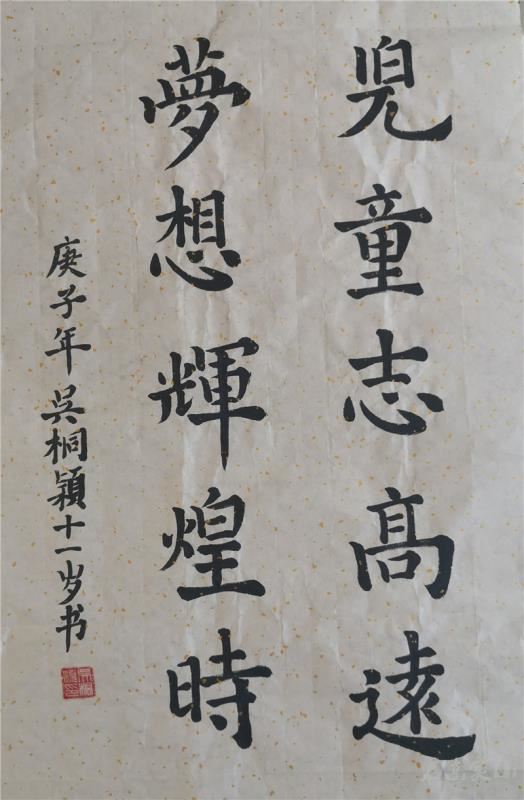 兒童志高遠
夢想輝煌時
庚子年吳桐穎十一岁书